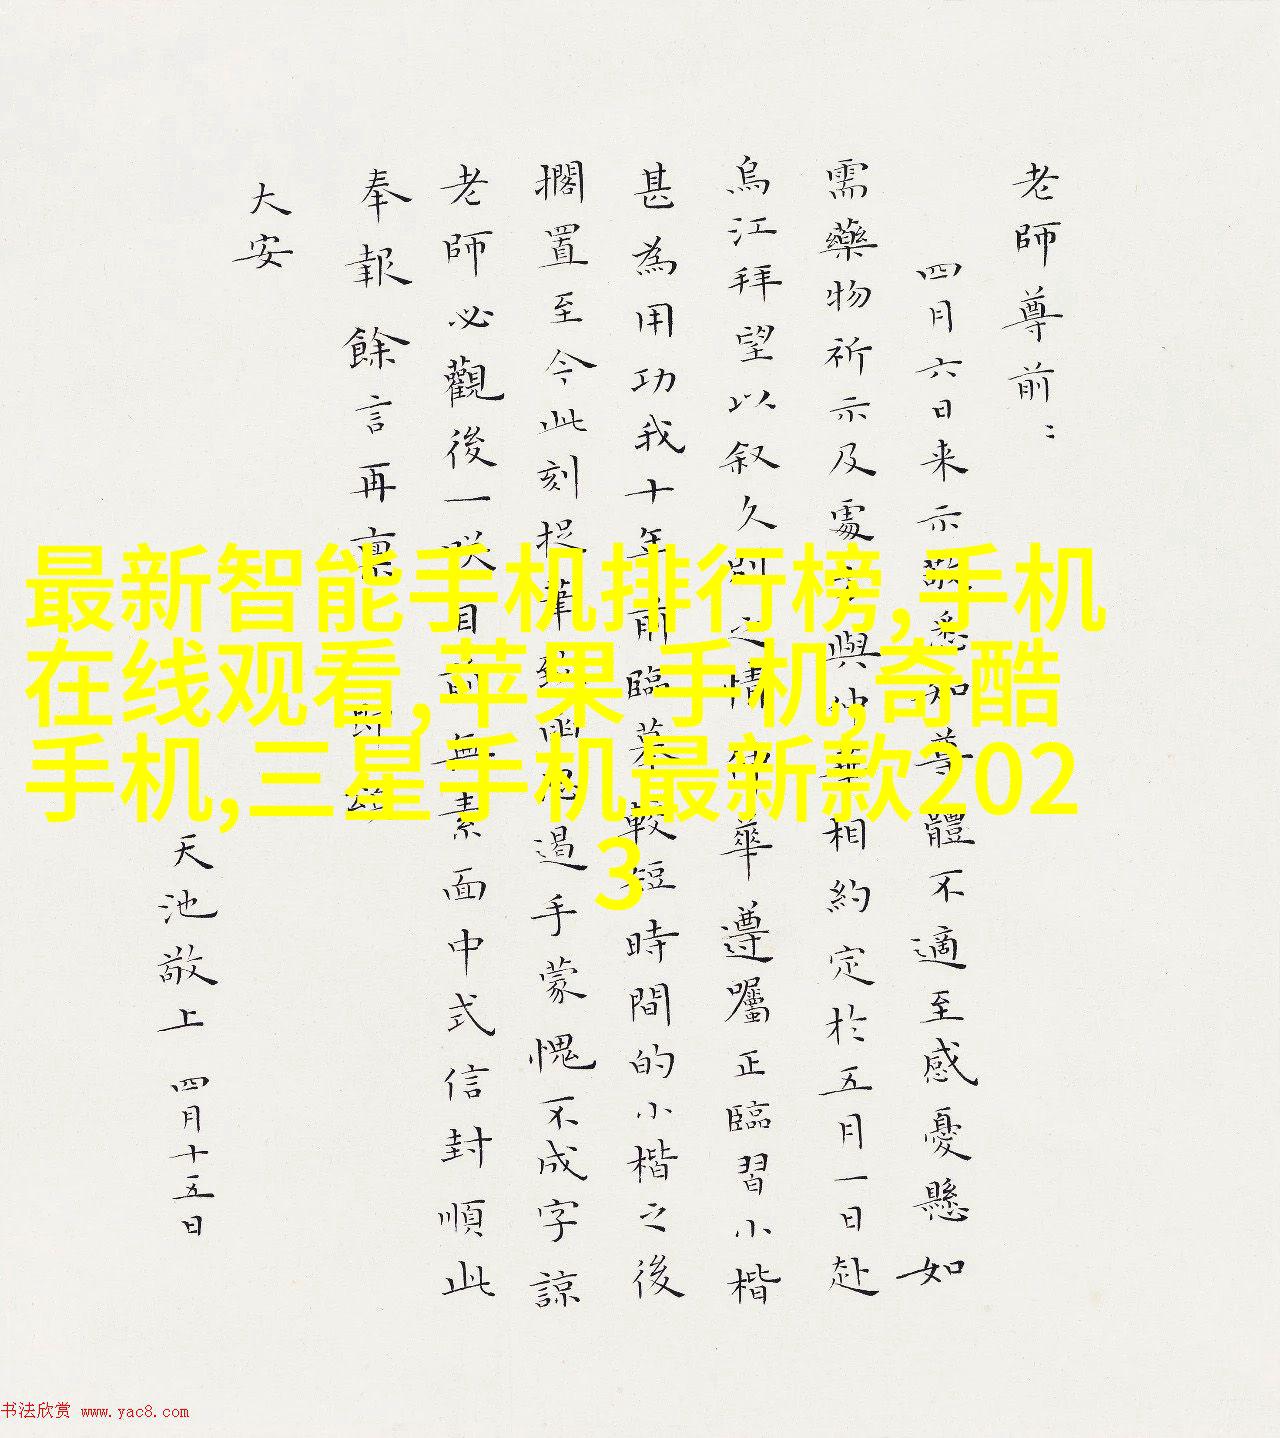 老師尊前：
四月六日来示敬悉知尊體不適至感憂懸如
需藥物祈示及處與仲華相約定於五月一日赴
烏江拜望以叙久別之情仲華遵囑正臨習小楷
甚為用功我十年前臨摹較短時間的小楷之後
擱置至今此刻捉筆手蒙愧不成字諒
老師必觀後一咲目前無素面中式信封順此
奉報餘言再稟
大安
天池敬上 四月十五日
最新智能手机排行榜,手机
在线观看,苹果 手机,奇酷
手机,三星手机最新款202
3
书法欣赏 www.yac8.com